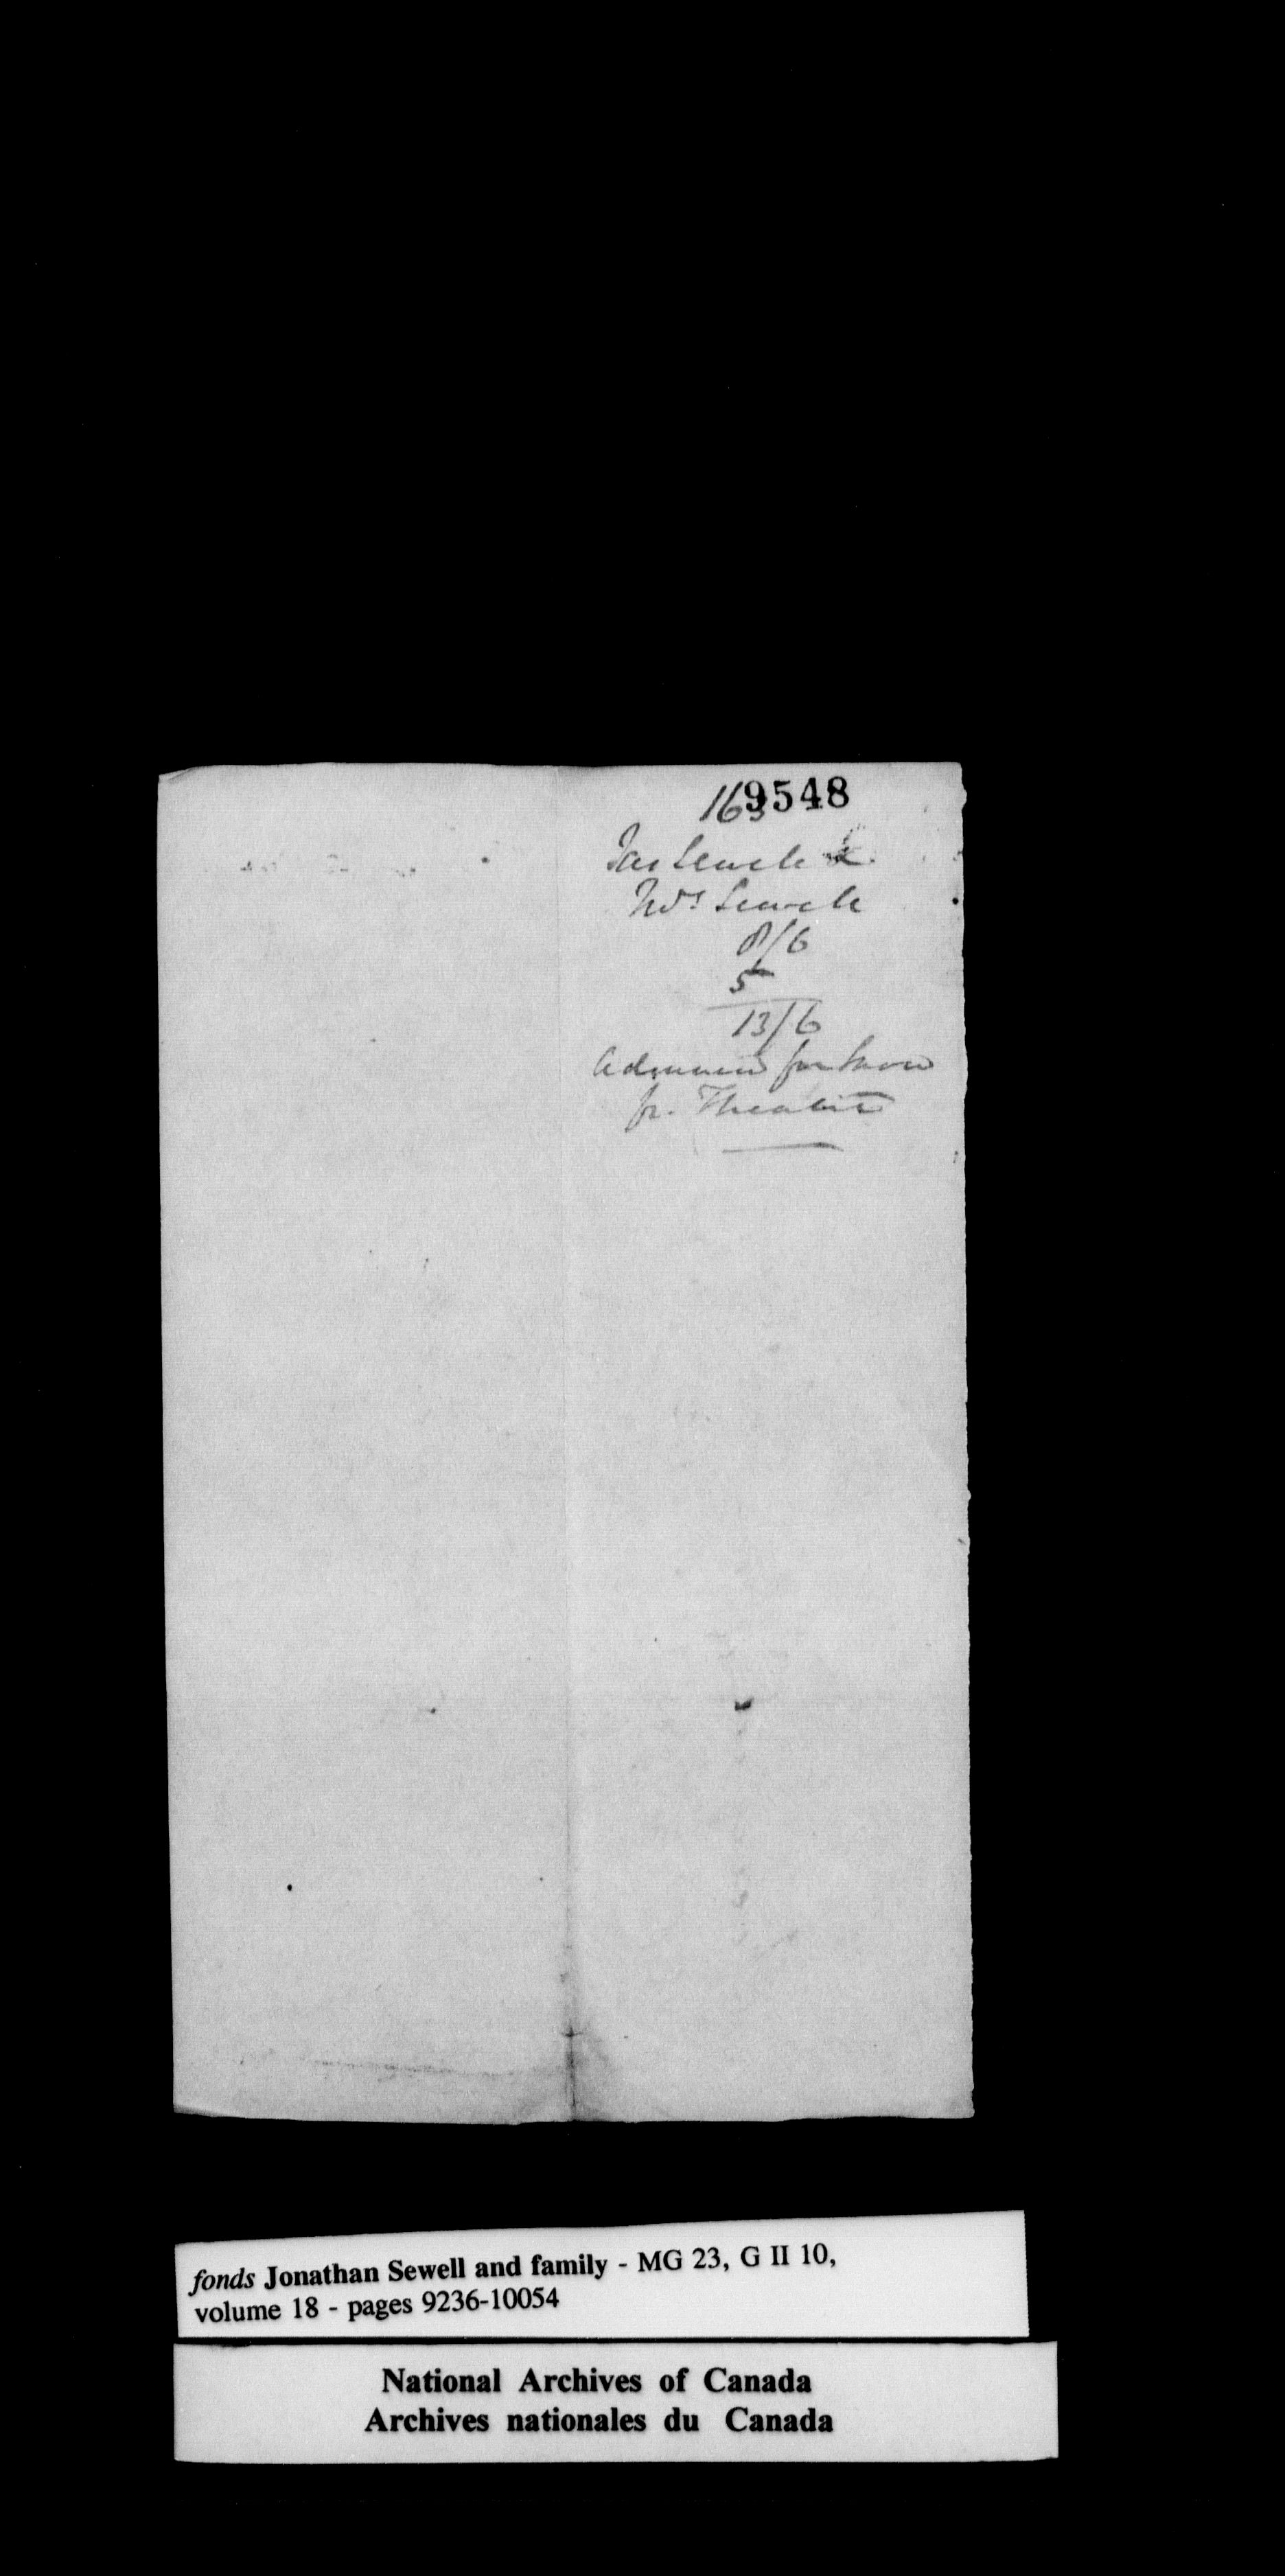 9548
163
Jas Sewell &
Mrs Sewell
8/6
5
13/6
for Snow
fr. Theatre
fonds Jonathan Sewell and family - MG 23, G II 10,
volume 18 - pages 9236-10054
National Archives of Canada
Archives nationales du Canada